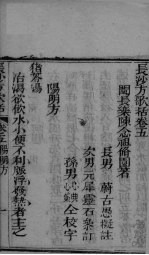 長沙方歌括卷五
閩長樂陳念祖修園著
長男　蔚古愚擬註
次男元犀靈石參訂
孫男
心典
心蘭
全校字
陽明方
豬苓湯
治渴欲飲水小便不利脈浮發熱者主之